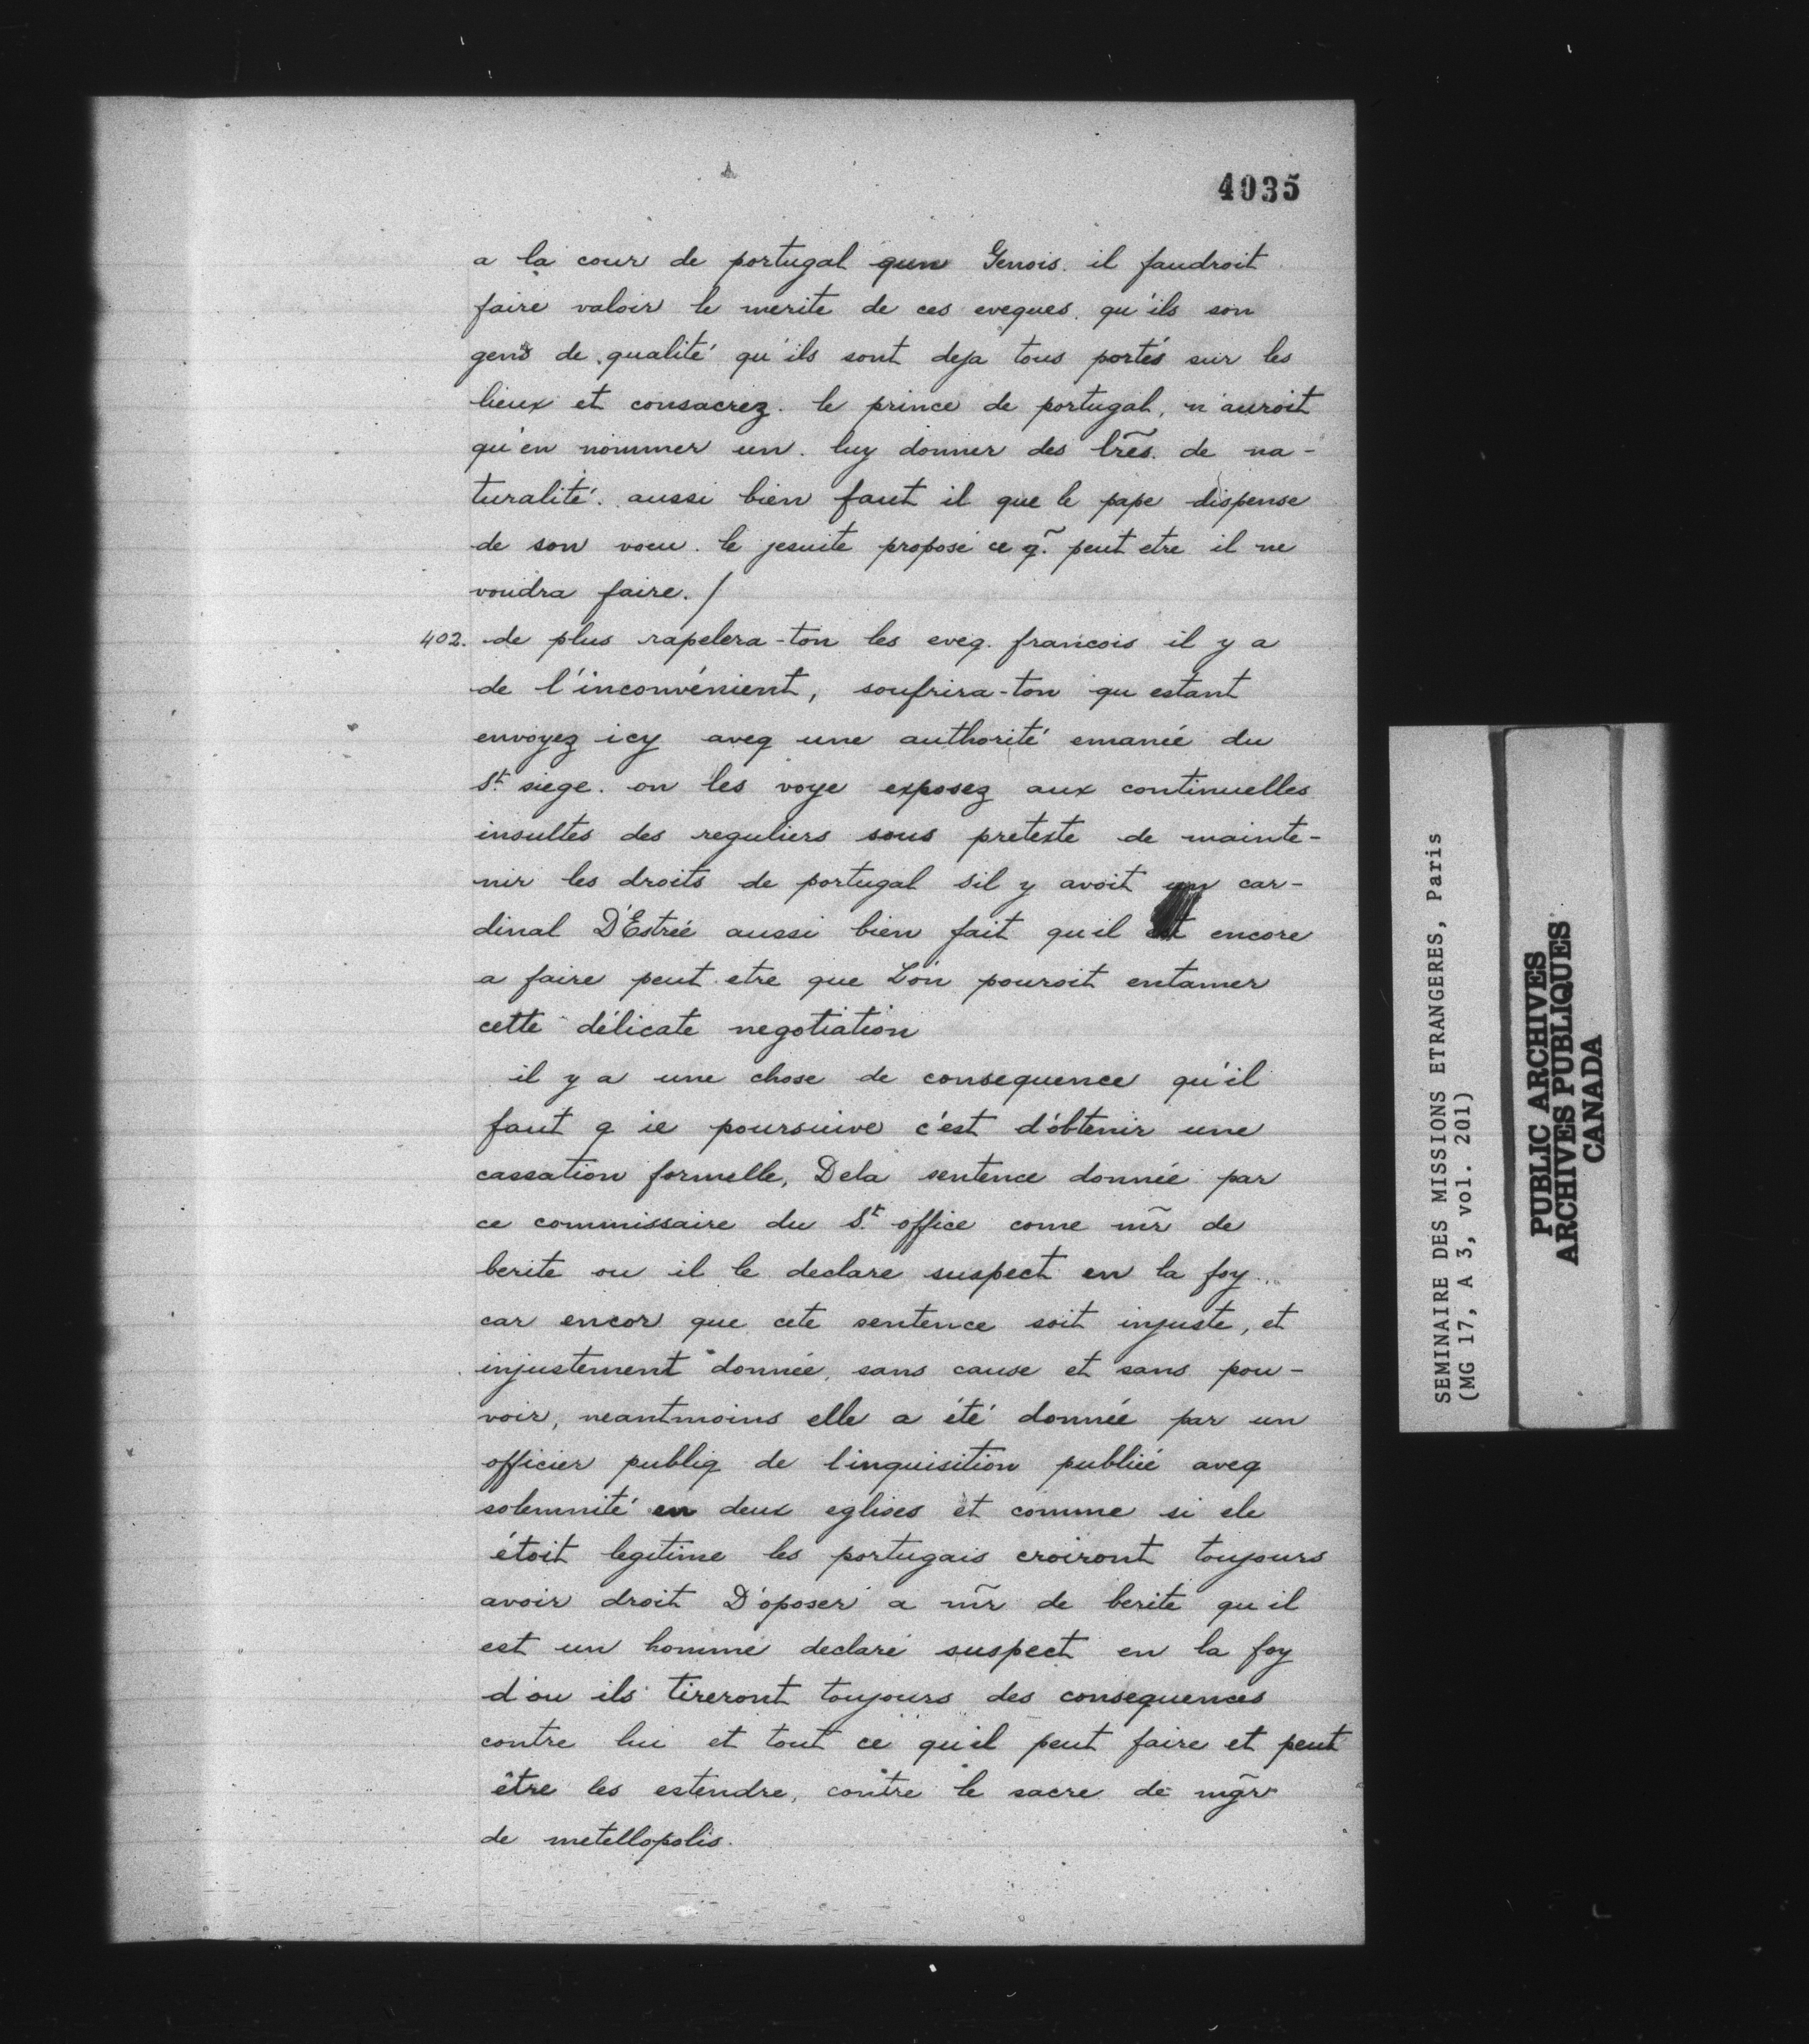 4035
a la cour de portugal qun Genois. il faudroit
faire valoir le merite de ces eveques. qu'ils son
gens de qualité qu'ils sont deja tous portés sur les
lieux et consacrez. le prince de portugal, n'auroit
qu'en nommer un. luy donner des lr̃es. de na-
turalité. aussi bien faut il que le pape dispense
de son voeu. le jesuite proposé ce q̃. peut etre il ne
voudra faire. /
402. de plus rapelera-ton les eveq. francois il y a
de l'inconvénient, soufrira-ton qu estant
envoyez icy aveq une authorité emanée du
St. siege. on les voye exposez aux continuelles
insultes des reguliers sous preteste de mainte-
nir les droits de portugal sil y avoit un car-
dinal D'Estrée aussi bien fait quil est encore
a faire peut etre que L'on pouroit entamer
cette délicate negotiation
il y a une chose de consequence qu'il
faut q ie poursuive c'est d'obtenir une
cassation formelle, Dela sentence donnée par
ce commissaire du St. office come mr̃ de
berite ou il le declare suspect en la foy..
car encor que cete sentence soit injuste, et
injustement donnée, sans cause et sans pou-
voir, neantmoins elle a été donnée par un
officier publiq de l'inquisition publiée aveq
solemnité en deux eglises et comme si ele
étoit legitime les portugais croiront toujours
avoir droit D'oposer a mr̃ de berite qu il
est un homme declaré suspect en la foy
d'ou ils tireront toujours des consequences
contre lui et tout ce qu'il peut faire et peut
être les estendre, contre le sacre de mgr̃
de metellopolis.
SEMINAIRE DES MISSIONS ETRANGERES, Paris
(MG 17, A 3, vol. 201)
PUBLIC ARCHIVES
ARCHIVES PUBLIQUES
CANADA